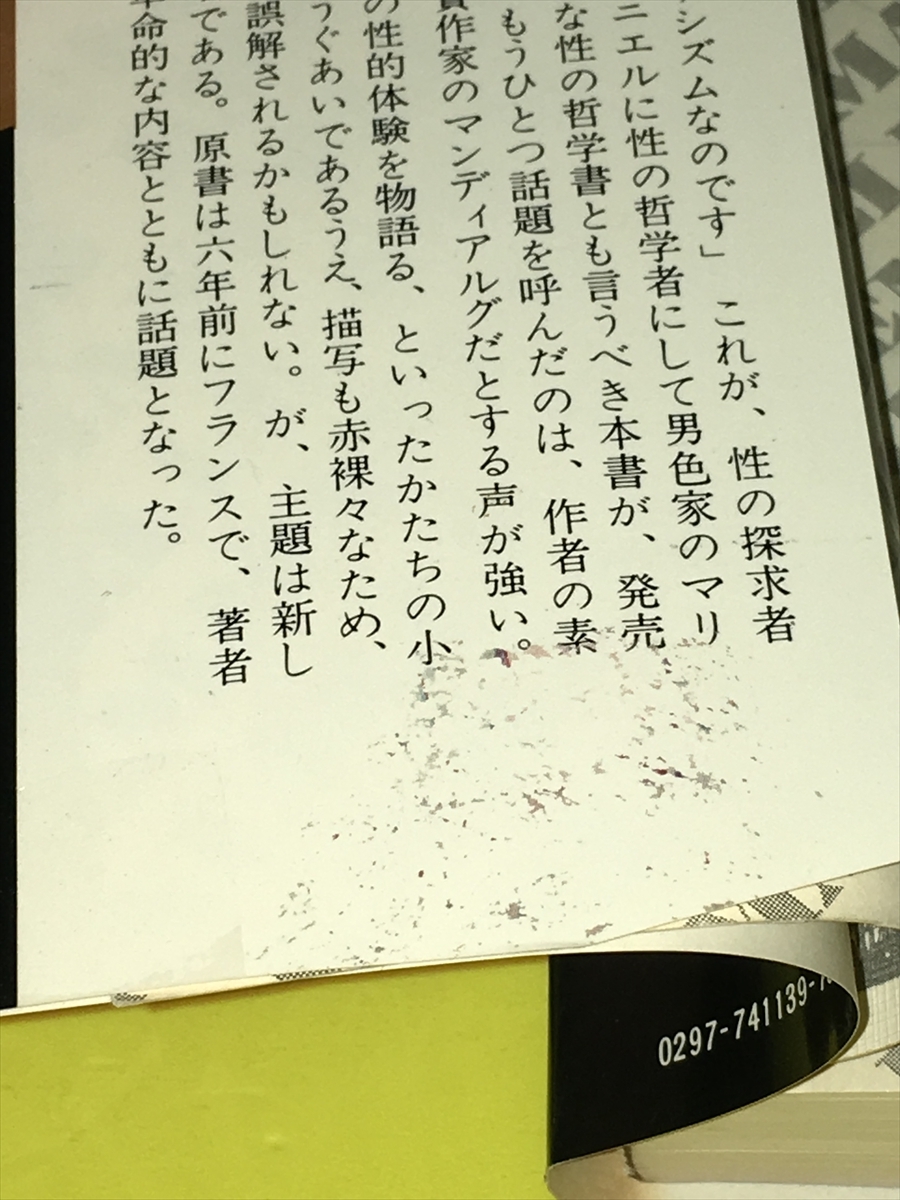 シズムなのです」 これが、性の探求者
ニエルに性の哲学者にして男色家のマリ
な性の哲学書とも言うべき本書が、発売
もうひとつ話題を呼んだのは、作者の素
作家のマンディアルグだとする声が強い。
の性的体験を物語る、といったかたちの小
うぐあいであるうえ、描写も赤裸々なため、
誤解されるかもしれない。が、主題は新し
である。原書は六年前にフランスで、著者
命的な内容とともに話題となった。
0297-741139-